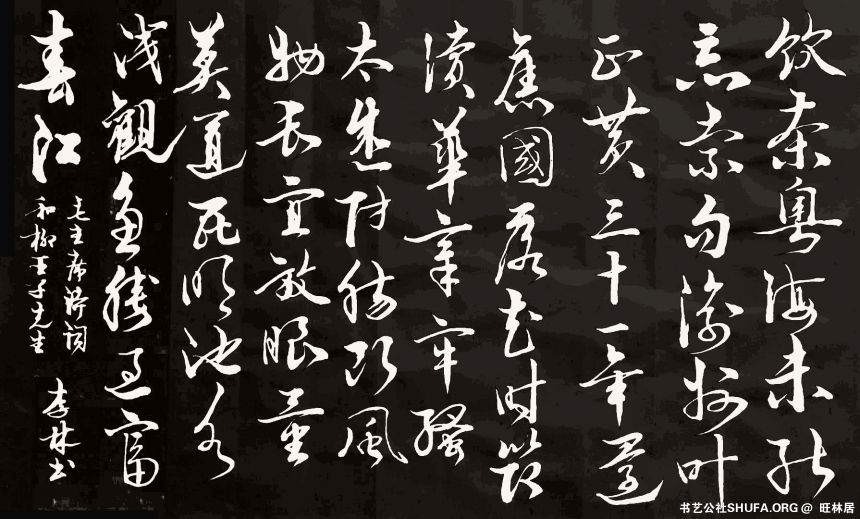 饮茶粤海未能
忘索句渝州叶
正黄三十一年还
旧國落花时节
读華章牢骚
太盛防肠断風
物长宜放眼量
莫道昆明池水
浅觀鱼勝过富
春江
毛主席诗词
和柳亚子先生
李林书
书艺公社SHUFA.ORG @ 旺林居